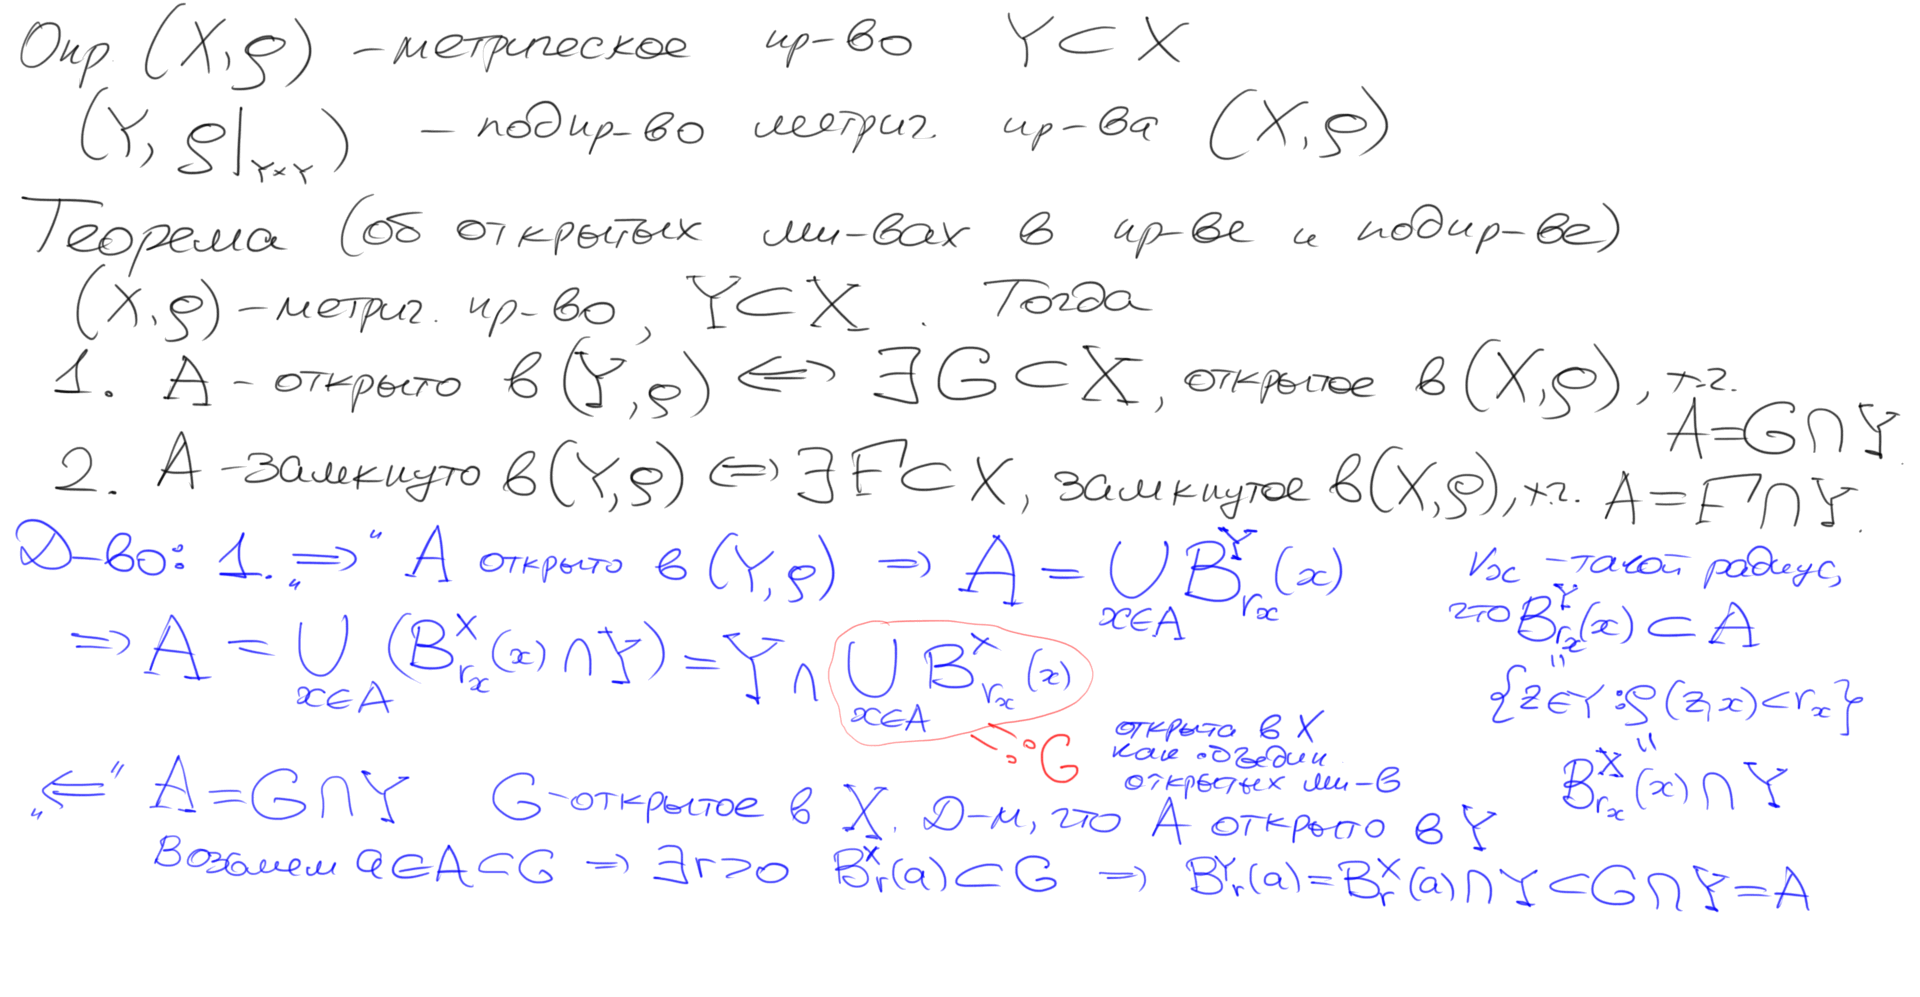 Опр. (X,ρ) – метрическое пр-во Y⊂X
(Y, ρ|_{Y×Y}) – подпр-во метрич. пр-ва (X,ρ)
Теорема (об открытых мн-вах в пр-ве и подпр-ве)
(X,ρ) – метрич. пр-во, Y⊂X. Тогда
1. A – открыто в (Y,ρ) ⟺ ∃G⊂X, открытое в (X,ρ), т.ч.
A=G∩Y.
2. A – замкнуто в (Y,ρ) ⟺ ∃F⊂X, замкнутое в (X,ρ), т.ч. A=F∩Y.
Д-во: 1. „⇒“ A открыто в (Y,ρ) ⇒ A = ⋃_{x∈A} B^Y_{r_x}(x)
r_x – такой радиус,
что B^Y_{r_x}(x) ⊂ A
"
{z∈Y : ρ(z,x)<r_x}
"
B^X_{r_x}(x) ∩ Y
⇒ A = ⋃_{x∈A} (B^X_{r_x}(x) ∩ Y) = Y ∩ ⋃_{x∈A} B^X_{r_x}(x)
=: G
открыто в X
как объедин
открытых мн-в
„⇐“ A=G∩Y G – открытое в X. Д-м, что A открыто в Y
Возьмем a∈A⊂G ⇒ ∃r>0 B^X_r(a)⊂G ⇒ B^Y_r(a)=B^X_r(a)∩Y⊂G∩Y=A